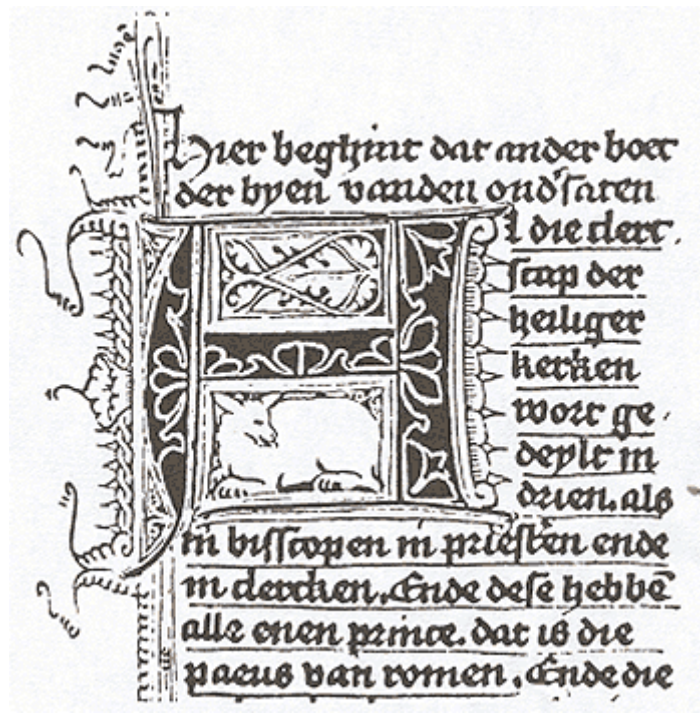 Hier beghint dat ander boec
der byen vanden oudsaten
Al die clerc
scap der
heiliger
kerken
wort ge
deylt in
drien. als
in bisscopen in priesteren ende
in clercken. Ende dese hebbē
alle enen prince. dat is die
paeus van romen. Ende die